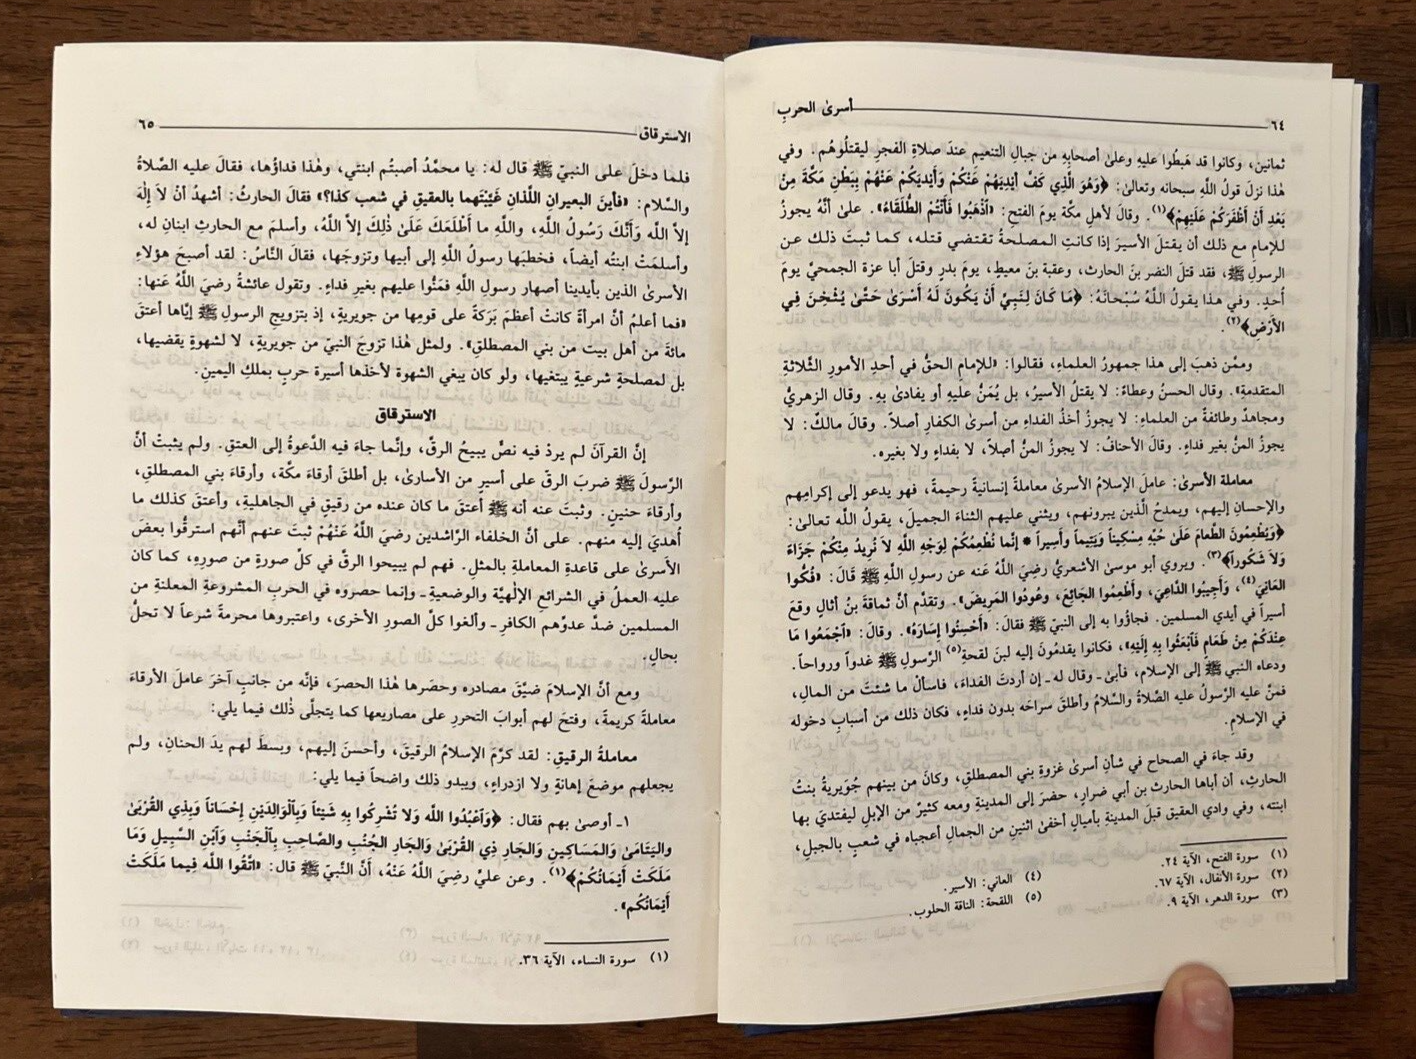 أسرىٰ الحربِ ٦٤
ثمانين، وكانوا قد هَبطُوا عليهِ وعلىٰ أصحابِهِ من جبالِ التنعيم عندَ صلاةِ الفجرِ ليقتلُوهُم. وفي
هٰذا نزلَ قولُ اللَّهِ سبحانه وتعالىٰ: ﴿وَهُوَ الَّذِي كَفَّ أَيْدِيَهُمْ عَنْكُمْ وَأَيْدِيَكُمْ عَنْهُمْ بِبَطْنِ مَكَّةَ مِنْ
بَعْدِ أَنْ أَظْفَرَكُمْ عَلَيْهِمْ﴾(١). وقالَ لأهلِ مكَّةَ يومَ الفتح: «اَذْهَبُوا فَأَنْتُمْ الطُّلَقَاءُ». علىٰ أنَّهُ يجوزُ
للإمامِ مع ذلك أن يقتلَ الأسيرَ إذا كانتِ المصلحةُ تقتضي قتله، كما ثبتَ ذلك عن
الرسولِ ﷺ، فقد قتلَ النضر بنَ الحارث، وعقبة بنَ معيطٍ، يومَ بدرٍ وقتلَ أبا عزة الجمحيَّ يومَ
أُحدٍ. وفي هٰذا يقولُ اللَّهُ سُبْحَانَهُ: ﴿مَا كَانَ لِنَبِيٍّ أَنْ يَكُونَ لَهُ أَسْرَىٰ حَتَّىٰ يُثْخِنَ فِي
الأَرْضِ﴾(٢).
وممَّن ذهبَ إلى هذا جمهورُ العلماءِ، فقالوا: «للإمامِ الحقُّ في أحدِ الأمورِ الثَّلاثةِ
المتقدمةِ». وقال الحسنُ وعطاءٌ: لا يقتلُ الأسيرُ، بل يُمَنُّ عليهِ أو يفادىٰ بهِ. وقال الزهريُّ
ومجاهدٌ وطائفةٌ من العلماءِ: لا يجوزُ أخذُ الفداءِ من أسرىٰ الكفارِ أصلاً. وقالَ مالكٌ: لا
يجوزُ المنُّ بغير فداءٍ. وقالَ الأحنافُ: لا يجوزُ المنُّ أصلاً، لا بفداءٍ ولا بغيره.
معاملة الأسرىٰ: عاملَ الإسلامُ الأسرىٰ معاملةً إنسانيةً رحيمةً، فهو يدعو إلى إكرامِهم
والإحسانِ إليهم، ويمدحُ الَّذين يبرونهم، ويثني عليهم الثناءَ الجميلَ، يقولُ اللَّه تعالىٰ:
﴿وَيُطْعِمُونَ الطَّعامَ عَلَىٰ حُبِّهِ مِسْكِيناً وَيَتِيماً وأسيراً * إنَّما نُطْعِمُكُمْ لِوَجْهِ اللَّهِ لاَ نُرِيدُ مِنْكُمْ جَزَاءً
وَلاَ شَكُوراً﴾(٣). ويروي أبو موسىٰ الأشعريُّ رضِيَ اللَّهُ عَنه عن رسولِ اللَّهِ ﷺ قالَ: «فُكُّوا
العَانِيَ(٤)، وَأَجِيبُوا الدَّاعِيَ، وأَطْعِمُوا الجَائِعَ، وعُودُوا المَرِيضَ». وتقدَّم أنَّ ثماقةَ بنُ أثالٍ وقعَ
أسيراً في أيدي المسلمين. فجاؤُوا به إلى النبيِّ ﷺ فقالَ: «أَحْسِنُوا إِسَارَهُ». وقالَ: «اَجْمَعُوا مَا
عِنْدَكُمْ مِنْ طَعَامٍ فَأَبْعَثُوا بِهِ إِلَيْهِ»، فكانوا يقدمُونَ إليه لبنَ لقحةِ(٥) الرَّسولِ ﷺ غدواً ورواحاً.
ودعاه النبي ﷺ إلى الإسلام، فأبىٰ ـ وقال له ـ إن أردتَ الفداءَ، فاسألْ ما شئتَ من المالِ،
فمنَّ عليه الرَّسولُ عليه الصَّلاةُ والسَّلامُ وأطلقَ سراحَه بدون فداءٍ، فكان ذلك من أسبابِ دخوله
في الإسلامِ.
وقد جاءَ في الصحاح في شأنِ أسرىٰ غزوةِ بني المصطلقِ، وكانَ من بينهم جُوَيريةُ بنتُ
الحارثِ، أن أباها الحارث بن أبي ضرار، حضرَ إلى المدينةِ ومعه كثيرٌ من الإبلِ ليفتديَ بها
ابنته، وفي وادي العقيق قبلَ المدينةِ بأميالٍ أخفىٰ اثنينِ من الجمالِ أعجباه في شعبٍ بالجبلِ،
(١) سورة الفتح، الآية ٢٤.
(٢) سورة الأنفال، الآية ٦٧.
(٣) سورة الدهر، الآية ٩.
(٤) العاني: الأسير.
(٥) اللقحة: الناقة الحلوب.
الاسترقاق ٦٥
فلما دخلَ على النبيِّ ﷺ قال له: يا محمَّدُ أصبتُم ابنتي، وهٰذا فداؤُها، فقالَ عليه الصَّلاةُ
والسَّلام: «فأينَ البعيرانِ اللَّذانِ غَيَّبْتَهما بالعقيقِ في شعب كذا؟» فقالَ الحارثُ: أشهدُ أنْ لاَ إلٰهَ
إلاَّ اللَّه وَأَنَّكَ رَسُولُ اللَّهِ، واللَّهِ ما أَطْلَعَكَ عَلَىٰ ذٰلِكَ إلاَّ اللَّهُ، وأسلمَ مع الحارثِ ابنانِ له،
وأسلمَتْ ابنتُه أيضاً، فخطبَها رسولُ اللَّهِ إلى أبيها وتزوجَها، فقالَ النَّاسُ: لقد أصبحَ هؤلاءِ
الأسرىٰ الذين بأيدينا أصهار رسولِ اللَّهِ فمَنُّوا عليهم بغيرِ فداءٍ. وتقول عائشةُ رضيَ اللَّهُ عَنها:
«فما أعلمُ أنَّ امرأةً كانتْ أعظمَ بَرَكةً على قومِها من جويريةَ، إذ بتزويجِ الرسولِ ﷺ إيَّاها أعتقَ
مائةً من أهل بيت من بني المصطلقِ». ولمثل هٰذا تزوجَ النبيّ من جويريةَ، لا لشهوةٍ يقضيها،
بل لمصلحةٍ شرعيةٍ يبتغيها، ولو كان يبغي الشهوة لأخذَها أسيرة حربٍ بملكِ اليمينِ.
الاسترقاق
إنَّ القرآنَ لم يردْ فيه نصٌّ يبيحُ الرقَّ، وإنَّما جاءَ فيه الدَّعوةُ إلى العتقِ. ولم يثبتْ أنَّ
الرَّسولَ ﷺ ضربَ الرقَّ على أسيرٍ من الأسارىٰ، بل أطلقَ أرقاءَ مكّة، وأرقاءَ بني المصطلقِ،
وأرقاءَ حنينٍ. وثبتَ عنه أنه ﷺ أعتقَ ما كان عنده من رقيقٍ في الجاهليةِ، وأعتقَ كذلك ما
أُهديَ إليه منهم. على أنَّ الخلفاء الرَّاشدين رضيَ اللَّهُ عَنْهُمْ ثبتَ عنهم أنَّهم استرقُّوا بعضَ
الأسرىٰ على قاعدةِ المعاملةِ بالمثلِ. فهم لم يبيحوا الرقَّ في كلِّ صورةٍ من صورِهِ، كما كان
عليه العملُ في الشرائعِ الإلٰهيَّةِ والوضعيةِ ـ وإنما حصروه في الحربِ المشروعةِ المعلنةِ من
المسلمين ضدَّ عدوِّهم الكافرِ ـ وألغوا كلَّ الصورِ الأخرى، واعتبروها محرمةً شرعاً لا تحلُّ
بحالٍ.
ومع أنَّ الإسلامَ ضيَّقَ مصادره وحصَرها هٰذا الحصرَ، فإنَّه من جانبٍ آخرَ عاملَ الأرقاءَ
معاملةً كريمةً، وفتحَ لهم أبوابَ التحررِ على مصاريعها كما يتجلَّى ذٰلك فيما يلي:
معاملةُ الرقيقِ: لقد كرَّمَ الإسلامُ الرقيقَ، وأحسنَ إليهم، وبسطَ لهم يدَ الحنانِ، ولم
يجعلهم موضعَ إهانةٍ ولا ازدراءٍ، ويبدو ذلك واضحاً فيما يلي:
١ـ أوصىٰ بهم فقال: ﴿وَاَعْبُدُوا اللَّه وَلا تُشْرِكُوا بِهِ شَيْئاً وَبِالْوَالِدَيْنِ إِحْسَاناً وَبِذِي القُرْبَىٰ
واليَتَامَىٰ وَالمَسَاكِينِ وَالجَارِ ذِي القُرْبَىٰ وَالجَارِ الجُنُبِ والصَّاحِبِ بِالْجَنْبِ وَاَبْنِ السَّبِيلِ وَمَا
مَلَكَتْ أَيْمَانُكُمْ﴾(١). وعن عليٍّ رضِيَ اللَّهُ عَنْهُ، أَنَّ النَّبِيَّ ﷺ قال: «اتَّقُوا اللَّه فيما مَلَكَتْ
أَيْمَانُكُم».
(١) سورة النساء، الآية ٣٦.